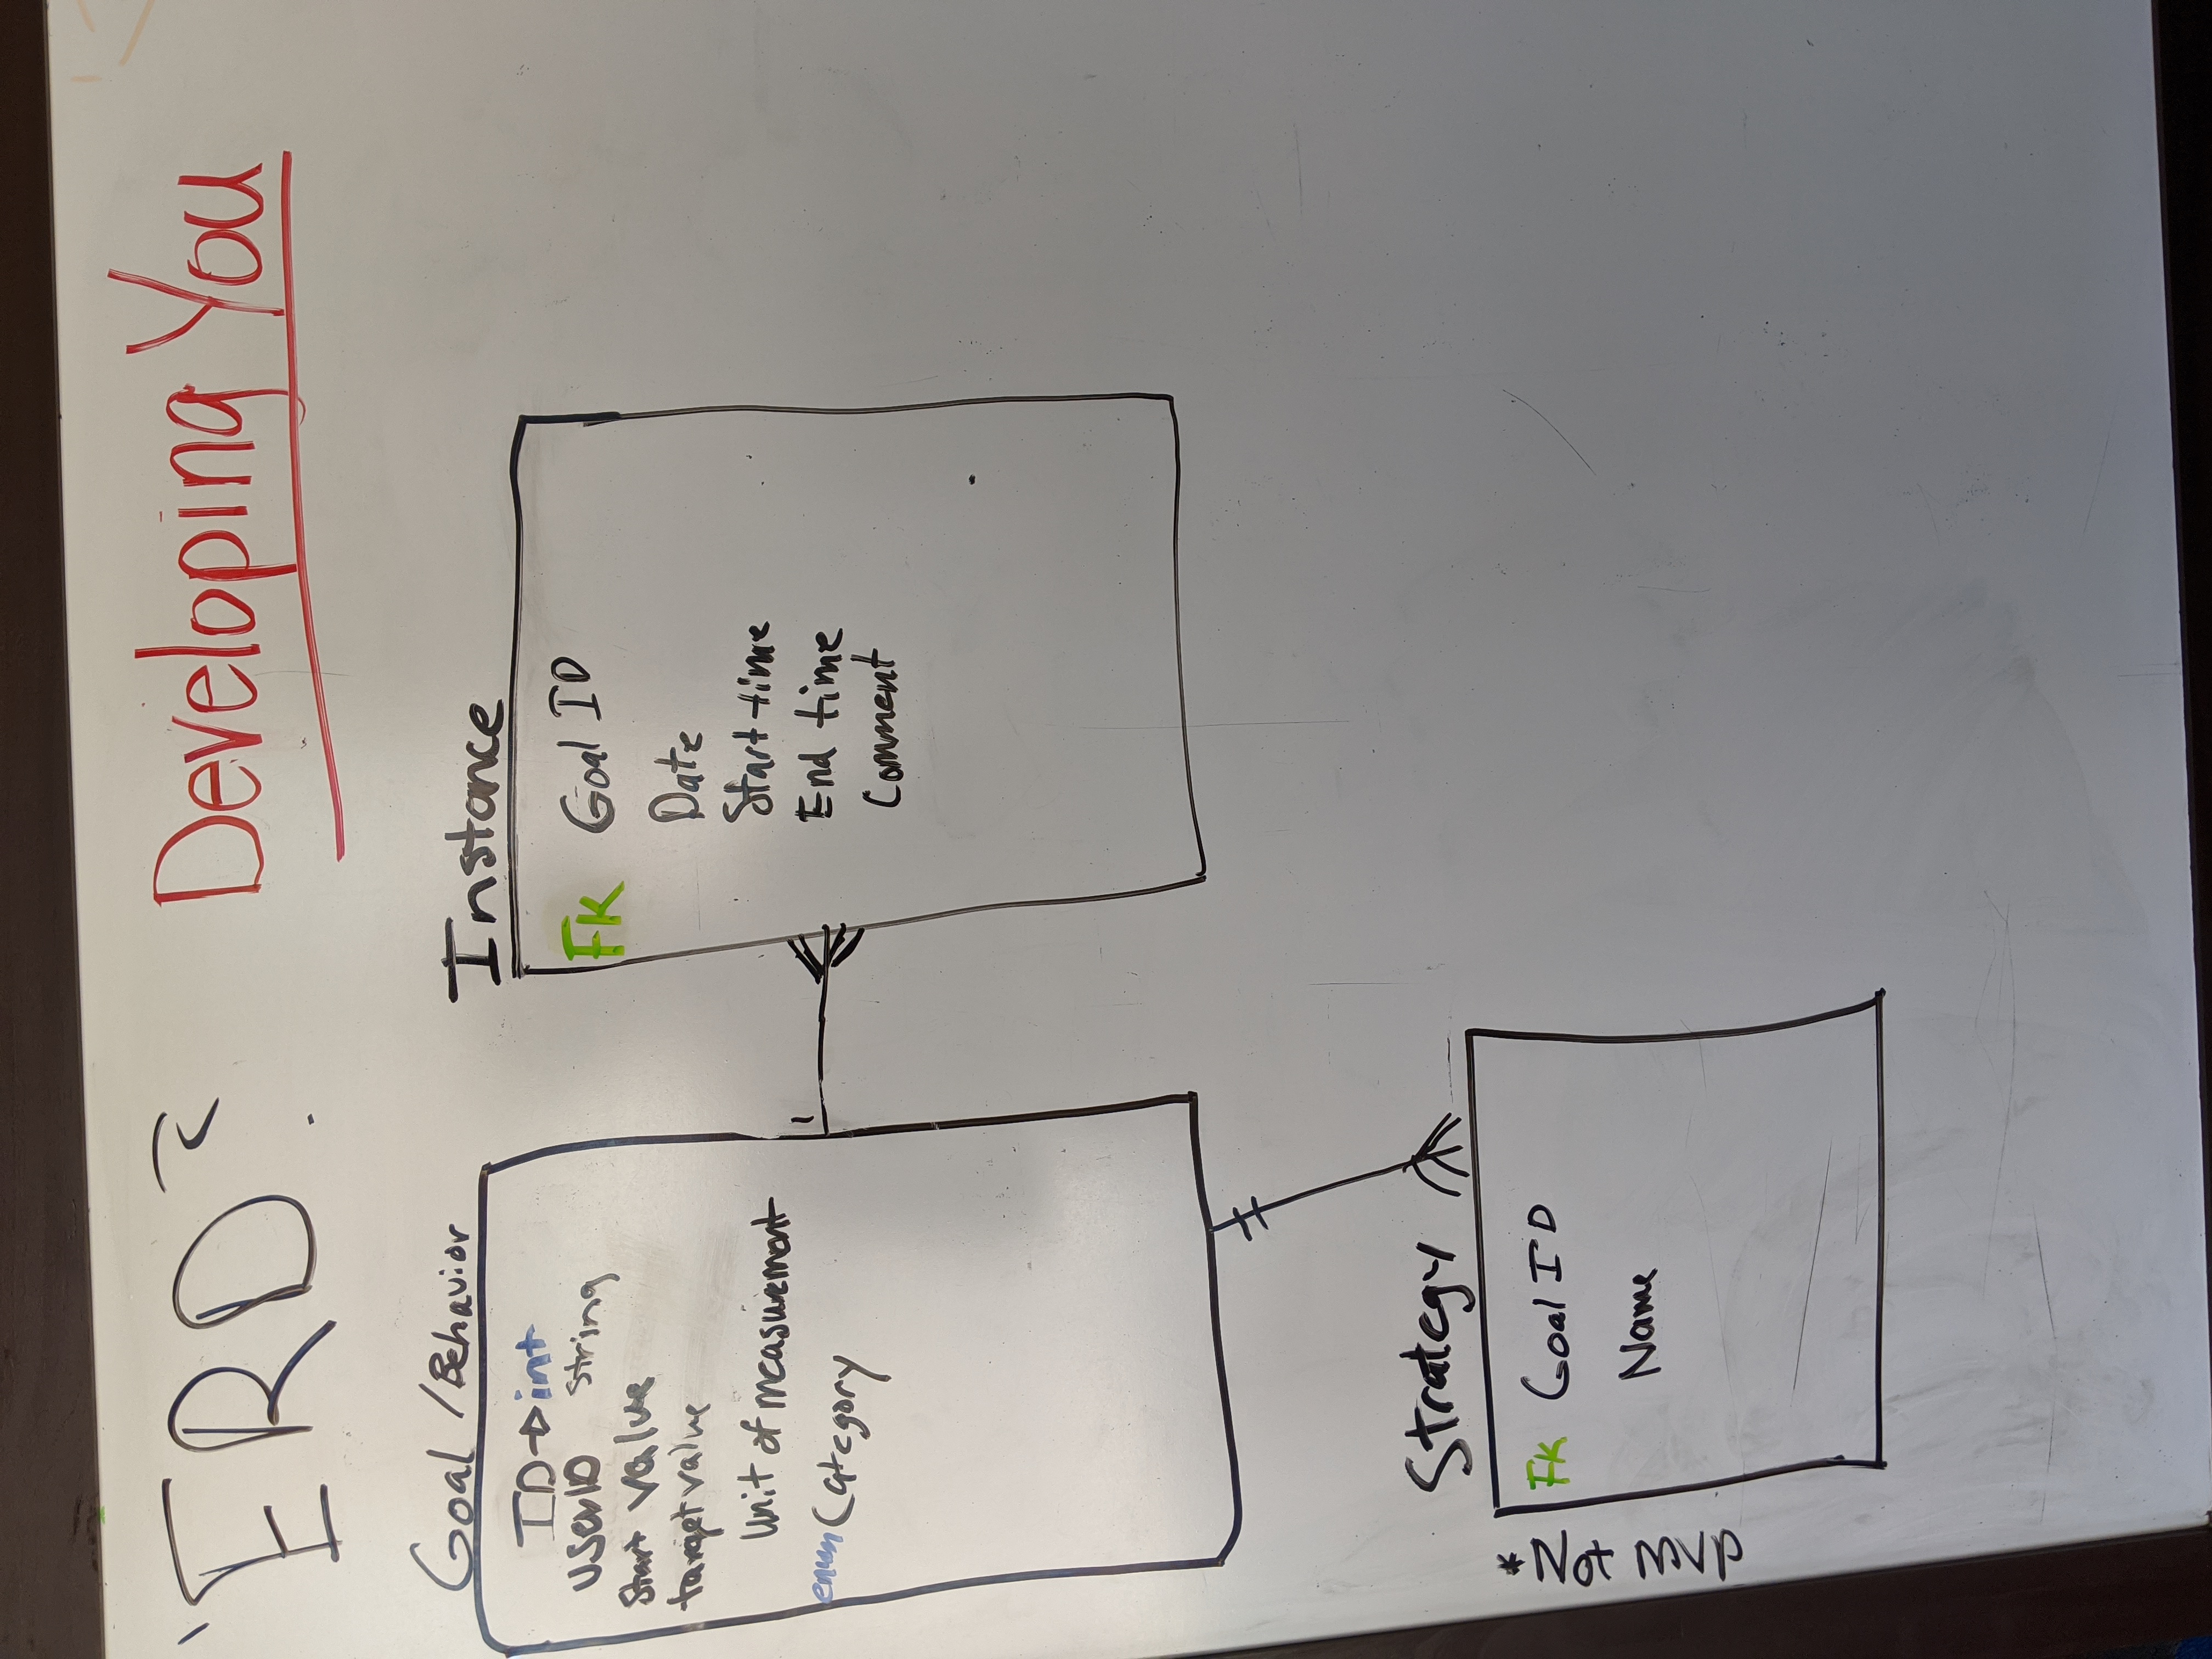 'ERD?
Developing You
Goal / Behavior
ID → int
userID string
Start value
target value
Unit of measurement
enum Category
1
Instance
FK Goal ID
Date
Start time
End time
Comment
Strategy
*Not MVP
FK Goal ID
Name